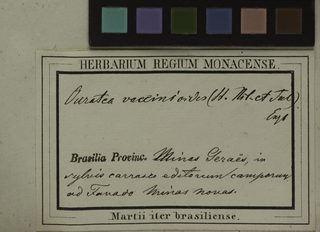 HERBARIUM REGIUM MONACENSE.
Ouratea vaccinioides (St. Hil. et Tul.)
Engl
Brasilia Provinc. Minas Geraës, in
sylvis carrasco editorum camporum
ad Fanado Minas novas.
Martii iter brasiliense.